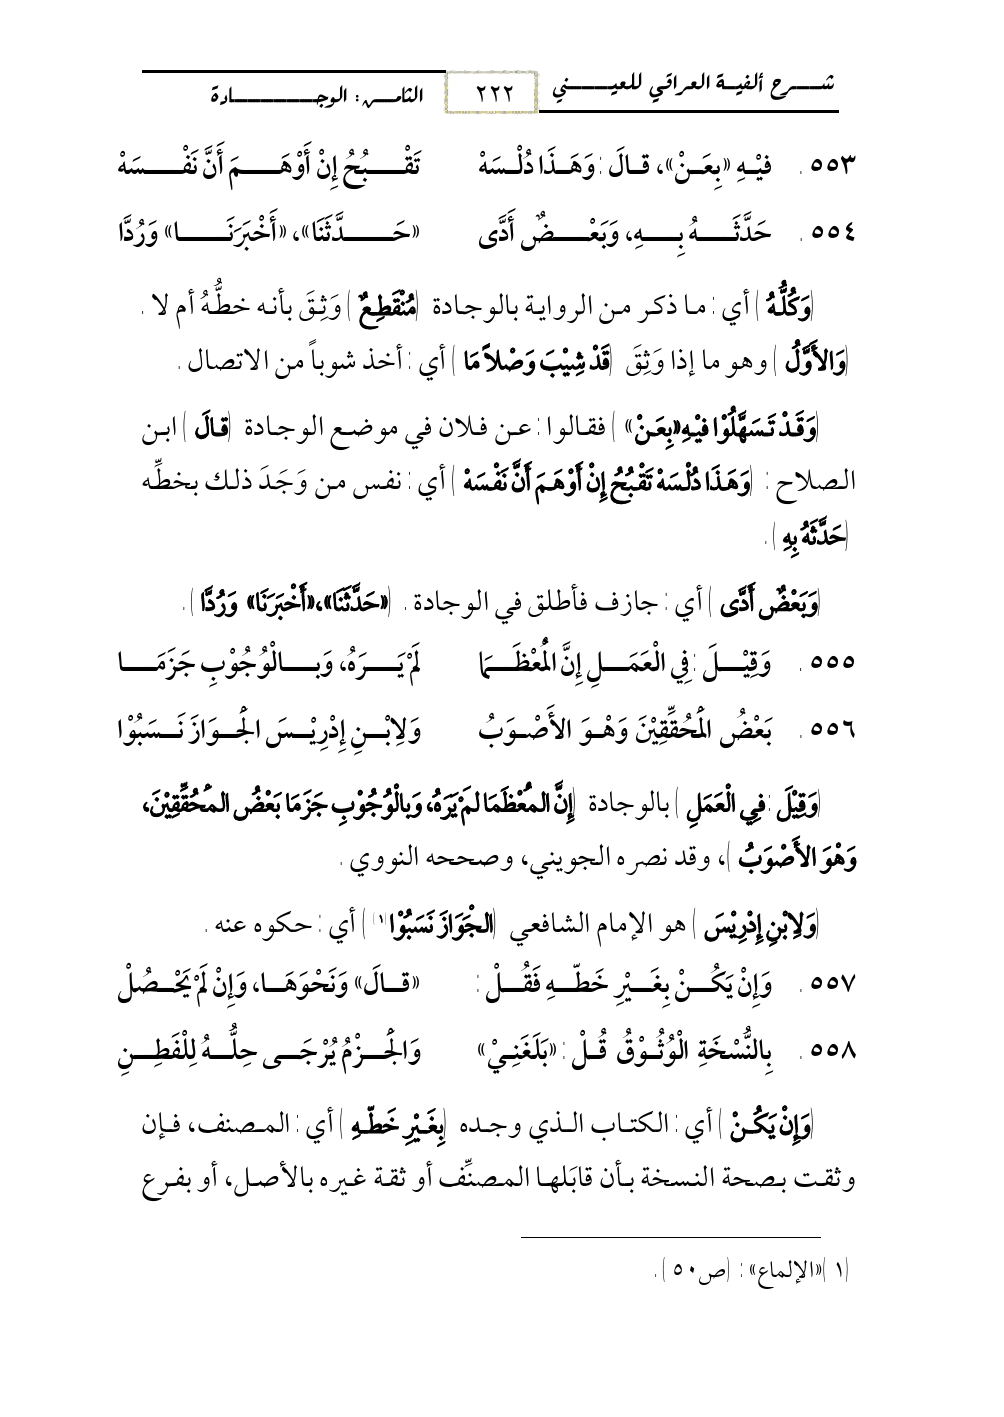 شـــرح ألفيـة العراقي للعيـــــني
٢٢٢
الثامـــن: الوجـــــــــــادة
٥٥٣ . فيْـهِ «بِعَـنْ»، قـالَ : وَهَـذَا دُلْـسَهْ تَقْـــبُحُ إِنْ أَوْهَـــــمَ أَنَّ نَفْـــــسَهْ
٥٥٤ . حَدَّثَـــــهُ بِـــــهِ، وَبَعْـــــضٌ أَدَّى «حَـــــدَّثَنَا»، «أَخْبَرَنَـــــا» وَرُدَّا
(وَكُلُّهُ) أي : مـا ذكـر مـن الروايـة بالوجـادة (مُنْقَطِعٌ) وَثِـقَ بأنـه خطُّـهُ أم لا .
(وَالأَوَّلُ) وهو ما إذا وَثِقَ (قَدْ شِيْبَ وَصْلاً مَا) أي : أخذ شوباً من الاتصال .
(وَقَدْ تَسَهَّلُوْا فيْهِ«بِعَنْ») فقـالوا : عـن فـلان في موضـع الوجـادة (قالَ) ابـن
الـصلاح : (وَهَذَا دُلْسَهْ تَقْبُحُ إِنْ أَوْهَمَ أَنَّ نَفْسَهْ) أي : نفس مـن وَجَدَ ذلـك بخطِّـه
(حَدَّثَهُ بِهِ) .
(وَبَعْضٌ أَدَّى) أي : جازف فأطلق في الوجادة . («حَدَّثَنَا»،«أَخْبَرَنَا» وَرُدَّا) .
٥٥٥ . وَقِيْـــلَ : فِي الْعَمَـــلِ إِنَّ الْمُعْظَـــمَا لَمْ يَـــــرَهُ، وَبـــالْوُجُوْبِ جَزَمَـــــا
٥٥٦ . بَعْضُ الْمُحَقِّقِيْنَ وَهْـوَ الأَصْـوَبُ وَلاِبْـــنِ إِدْرِيْـــسَ الْجَـــوَازَ نَـــسَبُوْا
(وَقِيْلَ : فِي الْعَمَلِ) بالوجادة (إِنَّ المُعْظَمَا لمْ يَرَهُ، وَبالْوُجُوْبِ جَزَمَا بَعْضُ المُحَقِّقِيْنَ،
وَهْوَ الأَصْوَبُ)، وقد نصره الجويني، وصححه النووي .
(وَلاِبْنِ إِدْرِيْسَ) هو الإمام الشافعي (الجَْوَازَ نَسَبُوْا(١)) أي : حكوه عنه .
٥٥٧ . وَإِنْ يَكُـــنْ بِغَـــيْرِ خَطّـــهِ فَقُـــلْ : «قـــالَ» وَنَحْوَهَـــا، وَإِنْ لَمْ يَحْـــصُلْ
٥٥٨ . بِالنُّسْخَةِ الْوُثُـوْقُ قُـلْ : «بَلَغَنِيْ» وَالْجَـــزْمُ يُرْجَـــى حِلُّـــهُ لِلْفَطِـــنِ
(وَإِنْ يَكُـنْ) أي : الكتـاب الـذي وجـده (بِغَـيْرِ خَطّـهِ) أي : المـصنف، فـإن
وثقـت بـصحة النسخة بـأن قابَلهـا المـصنِّف أو ثقـة غيره بالأصـل، أو بفـرع
(١)«الإلماع» : (ص٥٠) .